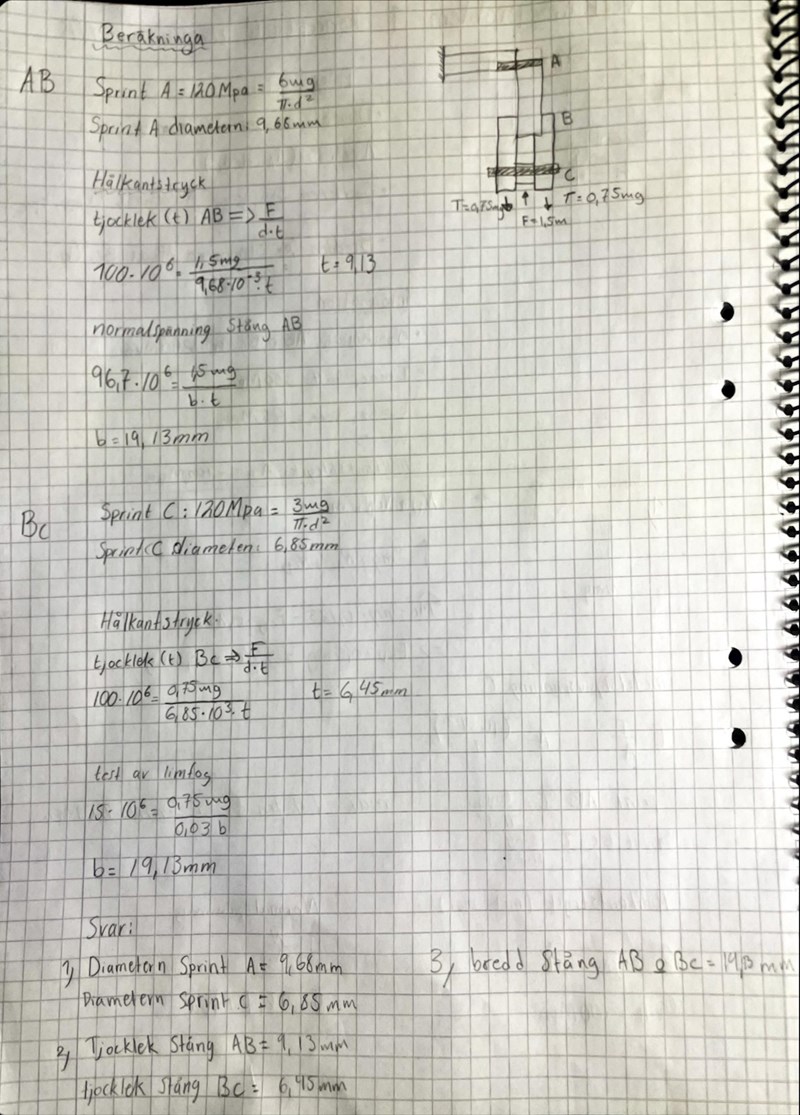 Beräkninga
AB
Sprint A = 120 Mpa = 6mg / π·d²
Sprint A diametern: 9,68mm
Hålkantstryck
tjocklek (t) AB => F / d·t
100·10⁶ = 1,5mg / 9,68·10⁻³·t t = 9,13
normalspänning Stång AB
96,7·10⁶ = 1,5mg / b·t
b = 19,13mm
A
B
C
T=0,75mg T=0,75mg
F=1,5m
Bc
Sprint C: 120Mpa = 3mg / π·d²
Sprint C diameten: 6,85mm
Hålkantstryck.
tjocklek (t) Bc => F / d·t
100·10⁶ = 0,75mg / 6,85·10³·t t = 6,45mm
test av limfog
15·10⁶ = 0,75mg / 0,03 b
b = 19,13mm
Svar:
1, Diametern Sprint A = 9,68mm
Diametern Sprint C = 6,85 mm
2, Tjocklek Stång AB = 9,13mm
tjocklek Stång Bc = 6,45mm
3, bredd Stång AB o Bc = 19,13 mm